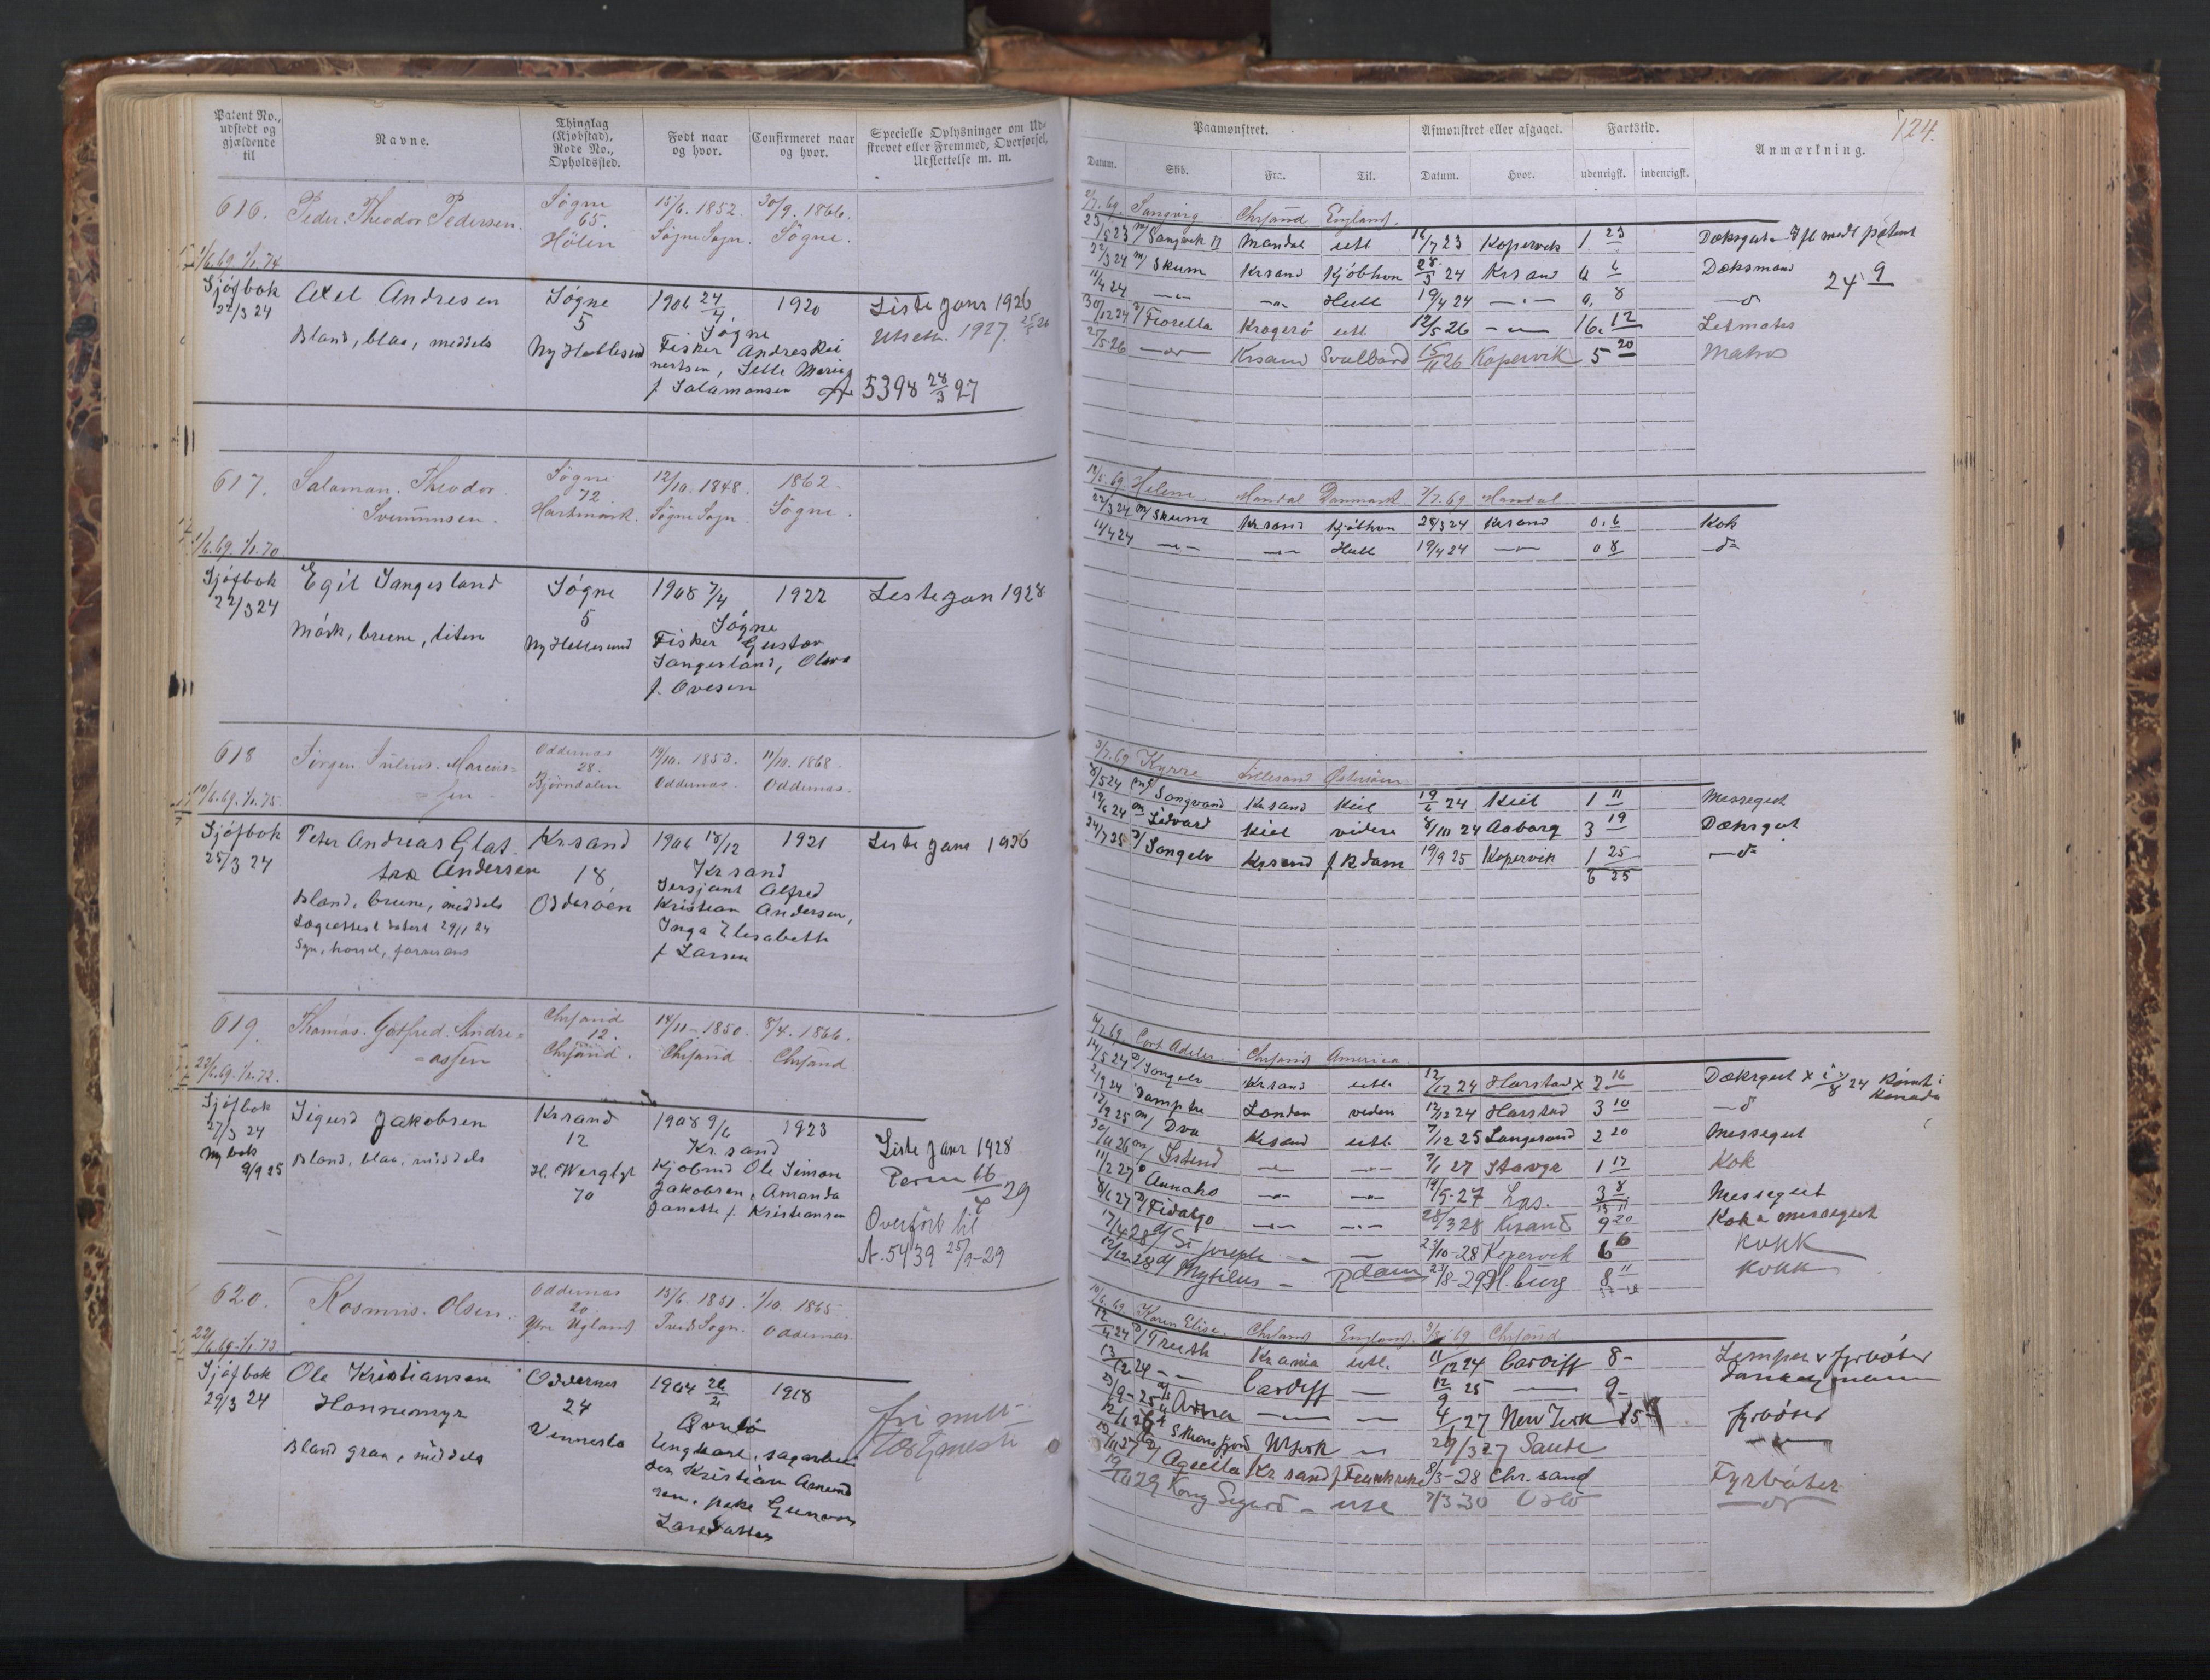 Patent No., udstedt og gjældende til
Navne.
Thinglag (Kjøbstad), Rode No., Opholdssted.
Født naar og hvor.
Confirmeret naar og hvor.
Specielle Oplysninger om Udskrevet eller Fremmed, Overførsel, Udslettelse m. m.
616.
Peder Theodor Pedersen.
Søgne
65.
Hölen
15/6. 1852.
Søgne Sogn.
30/9. 1866.
Søgne.
1/6.69. 1/1.74.
Sjøfbok
22/3 24
Axel Andresen
Bland, blaa, middels
Søgne
5
Ny Hellesund
1906 24/4
Søgne
Fisker Andreas Rei
nertsen, Sille Marie
f Salamonsen
1920
Liste Janr 1926
Utslett. 1927.
5398 28/3 27
617.
Salamon Theodor
Svennunsen.
Søgne
72
Hartmark.
12/10. 1848.
Søgne Sogn.
1862.
Søgne.
1/6.69. 1/1.70.
Sjøfbok
22/3 24
Egil Sangesland
Mörk, brune, liten
Søgne
5
Ny Hellesund
1908 7/4
Søgne
Fisker Gustav
Sangesland, Olava
f. Ovesen
1922
Liste jan 1928
618
Jörgen Julius Marcus=
=sen
Oddernæs
28.
Björndalen
19/10. 1853.
Oddernæs.
11/10. 1868.
Oddernæs.
10/6.69. 1/1.75.
Sjøfbok
25/3 24
Peter Andreas Glat
tre Andersen
Bland, brune, middels
Lægeattest datert 29/1 24
Syn, hørsel, farvesans
Krsand
18
Odderøen
1906 18/12
Krsand
Sersjant Alfred
Kristian Andersen,
Inga Elisabeth
f Larsen
1921
Liste Janr 1926
619.
Thomas Gotfred Andre=
=assen
Chrsand
12.
Chrsand.
14/11 1850.
Chrsand
8/4. 1866.
Chrsand
23/6.69. 1/1.72.
Sjøfbok
27/3 24
Ny bok
9/9 25
Sigurd Jakobsen
Bland, blaa, middels
Krsand
12
H. Wergl gt
70
1908 9/6
Kr.sand
Kjøbmd Ole Simon
Jakobsen, Amanda
Janette f. Kristiansen
1923
Liste Janr 1928
Perm 16/4 29
Overført til
A. 5439 25/9-29
620.
Rasmus Olsen.
Oddernæs
20.
Øvre Ugland
15/6. 1851.
Tveit Sogn.
1/10. 1865
Oddernæs.
22/6.69. 1/1.73.
Sjøfbok
29/3 24
Ole Kristiansen
Honnemyr
Bland graa, middels
Oddernes
24
Vennesla
1904 26/2
Øvrebö
Ungkarl, sagarbei
der Kristian Amund
sen, pike Gunvor
Larsdatter
1918
Paamønstret.
Afmønstret eller afgaaet.
Fartstid.
Anmærkning.
124.
Datum.
Skib.
Fra.
Til.
Datum.
Hvor.
udenrigsk.
indenrigsk.
2/7.69. Sangvig Chrsand England.
23/5 23 m/ Sangvik II Mandal utl 16/7 23 Kopervik 1 23 Dæksgut
22/3 24 m/ Skum Krsand Kjöbhvn 28/3 24 Krsand 0 6 Dæksmand
24 9
11/4 24 Hull 19/4 24 0. 8 —d
30/12 24 Fiorella Kragerö utl 12/5 26 16. 12 Letmatros
25/5 26 Krsand Svalbard 15/11 26 Kopervik 5 20 Matros
Helene. Mandal Danmark 7/7.69 Mandal
22/3 24 m/ Skum Krsand Kjöbhvn 28/3 24 Krsand 0. 6 Kok
11/4 24 Hull 19/4 24 0 8 —d
3/7.69 Kyrre Lillesand Østersøen
8/5 24 Songvand Krsand Kiel 19/6 24 Kiel 1 11 Messegut
19/6 24 Sidvard Kiel videre 8/10 24 Aaborg 3 19 Dæksgut
24/7 25 Songelv Krsand f Rdam 19/9 25 Kopervik 1 25 —d
6 25
6/7.69. Cort Adeler. Chrsand America.
14/5 24 Songelv Krsand utl. 12/12 24 Harstad x 2 16 Dæksgut x
2/9 24 London videre 17/12 24 Harstad 3 10 —d
12/9 25 m/ Dva Krsand utl. 7/12 25 Langesund 2 20 Messegut
m/ Istind 7/1 27 Stavgr 1 17 Kok
11/2 27 Annaho 19/5-27 Las. 3 8 Messegut
8/6 27 Fidalgo 28/3 28 Krsand 9 20 Kok & messegut
17/4 28 St Joseph 23/10-28 Kopervik 6 6 Kokk
12/12 28 Mytilus Rdam 23/8-29 H.burg 8 11 Kokk
10/6.69. Karen Elise. Chrsand England. Chrsand
12/4 24 Treeth Kr ania utl. 11/12 24 Cardiff 8 - Lemper & fyrbøter
13/12 24 Cardiff 12/9 25 9 - Dankeymann
4/1 27 New York fyrböter
Skansfjord N.York 29/3 27 Sauda
Aquella Kr sand f Frankrike 8/3-28 Chr.sand Fyrböter
19/10 29 Kong Sigurd utl 7/3 30 Oslo